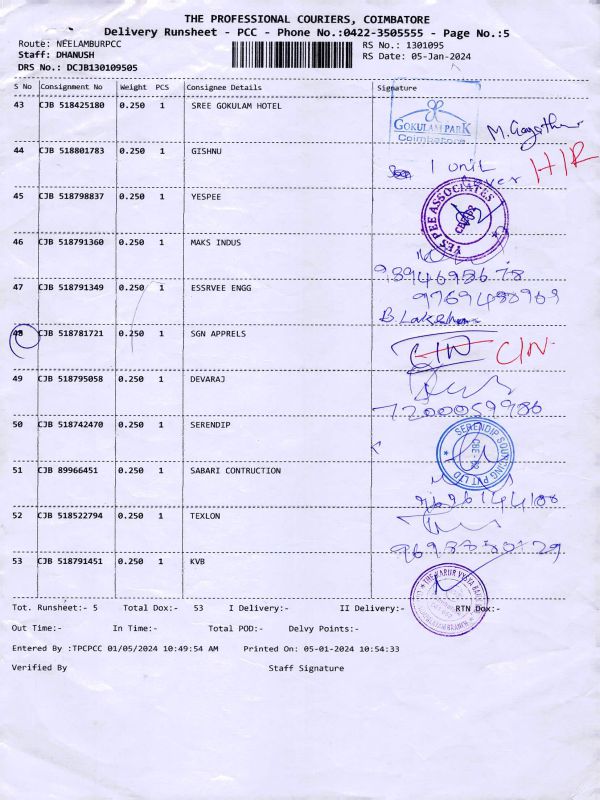 THE PROFESSIONAL COURIERS, COIMBATORE
Delivery Runsheet - PCC - Phone No.:0422-3505555 - Page No.:5
Route: NEELAMBURPCC RS No.: 1301095
Staff: DHANUSH RS Date: 05-Jan-2024
DRS No.: DCJB130109505
S No Consignment No Weight PCS Consignee Details Signature
43 CJB 518425180 0.250 1 SREE GOKULAM HOTEL
GOKULAM PARK
Coimbatore
44 CJB 518801783 0.250 1 GISHNU 1 Unit
over
45 CJB 518798837 0.250 1 YESPEE
YES PEE ASSOCIATES
46 CJB 518791360 0.250 1 MAKS INDUS
47 CJB 518791349 0.250 1 ESSRVEE ENGG
B. Lakshm
48 CJB 518781721 0.250 1 SGN APPRELS
CIN CIN
49 CJB 518795058 0.250 1 DEVARAJ
7200059986
50 CJB 518742470 0.250 1 SERENDIP
SERENDIP SOURCING PVT LTD
51 CJB 89966451 0.250 1 SABARI CONTRUCTION
52 CJB 518522794 0.250 1 TEXLON
53 CJB 518791451 0.250 1 KVB
THE KARUR VYSYA BANK
Tot. Runsheet:- 5 Total Dox:- 53 I Delivery:- II Delivery:- RTN Dox:-
Out Time:- In Time:- Total POD:- Delvy Points:-
Entered By :TPCPCC 01/05/2024 10:49:54 AM Printed On: 05-01-2024 10:54:33
Verified By Staff Signature